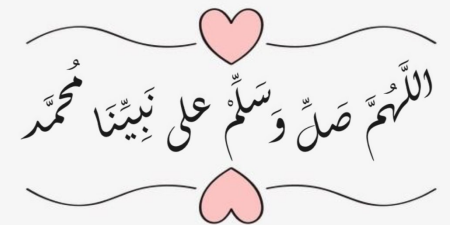 اللَّهُمَّ صَلِّ وَسَلِّمْ على نَبِيِّنَا مُحمَّد